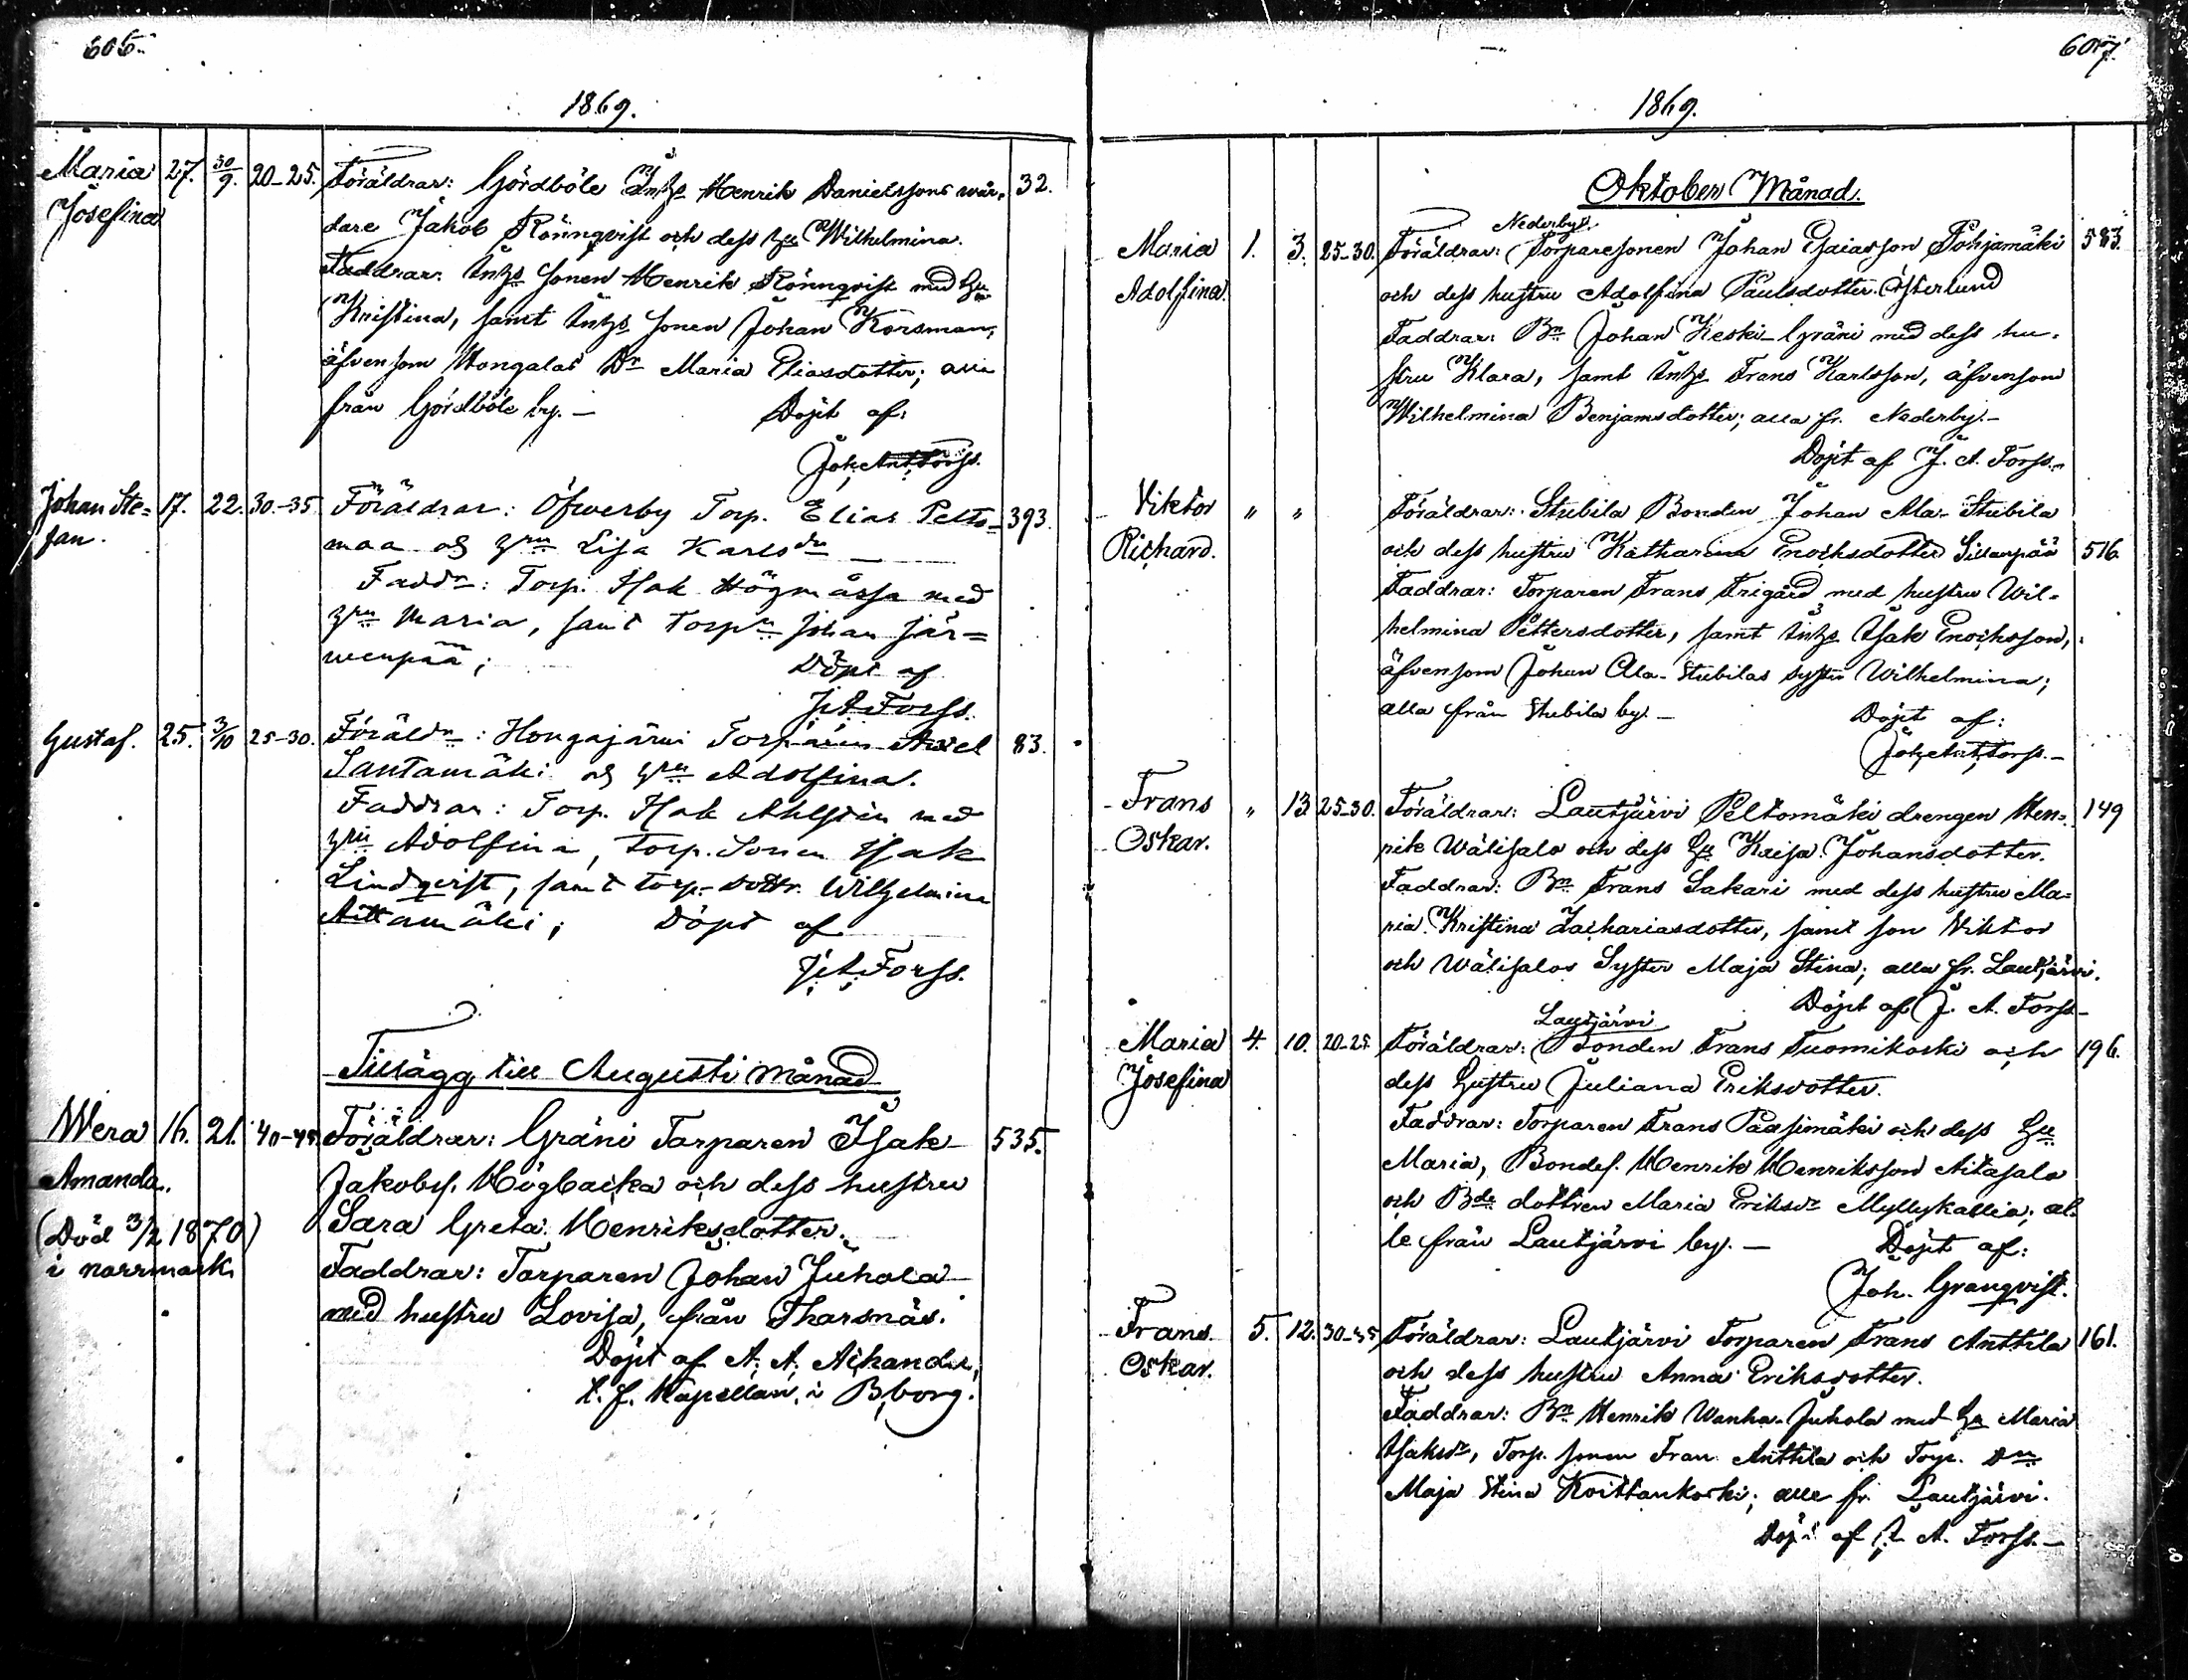 605.
1869.
Maria 27. 30/9. 20-25. Föräldrar: Gördböle Inhs Henrik Danielssons mår- 32.
Josefina dare Jakob Rönnqvist och dess hu Wilhelmina.
Faddrar: Inhs sonen Henrik Rönnqvist med hu
Kristina, samt Inhs sonen Johan Korsman,
äfvensom Hongalas Dr Maria Eliasdotter; alla
från Gördböle by. — Döpt af:
Joh. Ant. Forss.
Johan Ste= 17. 22. 30.-35 Föräldrar: Öfverby Torp. Elias Pelto= 393.
fan. maa och hru Lisa Karlsdr
Faddr: Torp. Isak Högmåssa med
hru Maria, samt Torpn Johan Jär=
wenpää; Döpt af
J. A. Forss.
Gustaf. 25. 3/10 25-30. Föräldr: Hongajärvi Torparen Axel 83.
Santamäki och hru Adolfina.
Faddrar: Torp. Isak Ahlsten med
hru Adolfina, Torp. Sonen Isak
Lindqvist, samt Torp. Dottr. Wilhelmina
Aittamäki; Döpt af
J. A. Forss.
Tillägg till Augusti Månad
Wera 16. 21. 40-45. Föräldrar: Gräni Torparen Isak 535.
Amanda. Jakobss. Högbacka och dess hustru
(Död 3/2 1870) Sara Greta Henriksdotter.
i norrmark. Faddrar: Torparen Johan Juhola
med hustru Lovisa, från Tharsnäs.
Döpt af A. A.
t. f. Kapellan i B,borg.
607.
1869.
Oktober Månad.
Nederby
Maria 1. 3. 25-30. Föräldrar: Torparesonen Johan Esaiasson Pohjamäki 583.
Adolfina. och dess hustru Adolfina Paulsdotter Österlund
Faddrar: Bn Johan Keski-Gräni med dess hu-
stru Klara, samt Inhs Frans Karlsson, äfvensom
Wilhelmina Benjamsdotter; alla fr. Nederby.—
Döpt af J. A. Forss.
Viktor " " Föräldrar: Stubila Bonden Johan Ala-Stubila
Richard. och dess hustru Katharina Enochsdotter Sillanpää 516.
Faddrar: Torparen Frans Frigård med hustru Wil-
helmina Pettersdotter, samt Inhs Isak Enochsson,
äfvensom Johan Ala-Stubilas syster Wilhelmina;
alla från Stubila by. — Döpt af:
Joh. Ant. Forss.—
Frans " 13. 25-30. Föräldrar: Lautjärvi Peltomäki drengen Hen- 149
Oskar. rik Wälisalo och dess hu Kaisa Johansdotter.
Faddrar: Bn Frans Sakari med dess hustru Ma-
ria Kristina Zachariasdotter, samt son Viktor
och Wälisalos Syster Maja Stina; alla fr. Lautjärvi.
Döpt af J. A. Forss—
Lautjärvi
Maria 4. 10. 20-25. Föräldrar: Bonden Frans Tuomikoski och 196.
Josefina dess hustru Juliana Eriksdotter.
Faddrar: Torparen Frans Paasimäki och dess hu
Maria, Bondes. Henrik Henriksson Aitasalo
och Bde dottren Maria Eriksdr Myllykallia; al-
la från Lautjärvi by. — Döpt af:
Joh. Granqvist.
Frans 5. 12. 30-35 Föräldrar: Lautjärvi Torparen Frans Anttila 161.
Oskar. och dess hustru Anna Eriksdotter.
Faddrar: Bn Henrik Wanha-Juhola med hu Maria
Isaksdr, Torp. sonen Frans Anttila och Torp. Dn
Maja Stina Koittankoski; alla fr. Lautjärvi.
Döpt af J. A. Forss.—